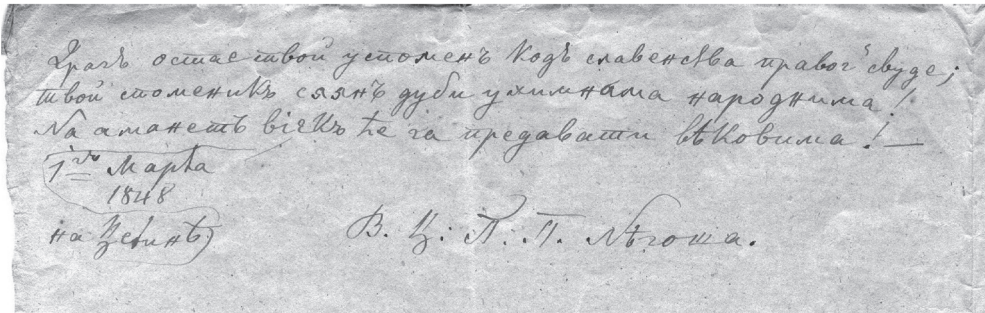 Драгъ остае твой успоменъ кодъ славенства правог' свуде;
твой споменикъ сяянъ дуби у химнама народнима!
На аманетъ вієкъ ће га предавати вѣковима! —
1го Марта
1848
на Цетинѣ)
В. Ц: П. П. Нѣгоша.